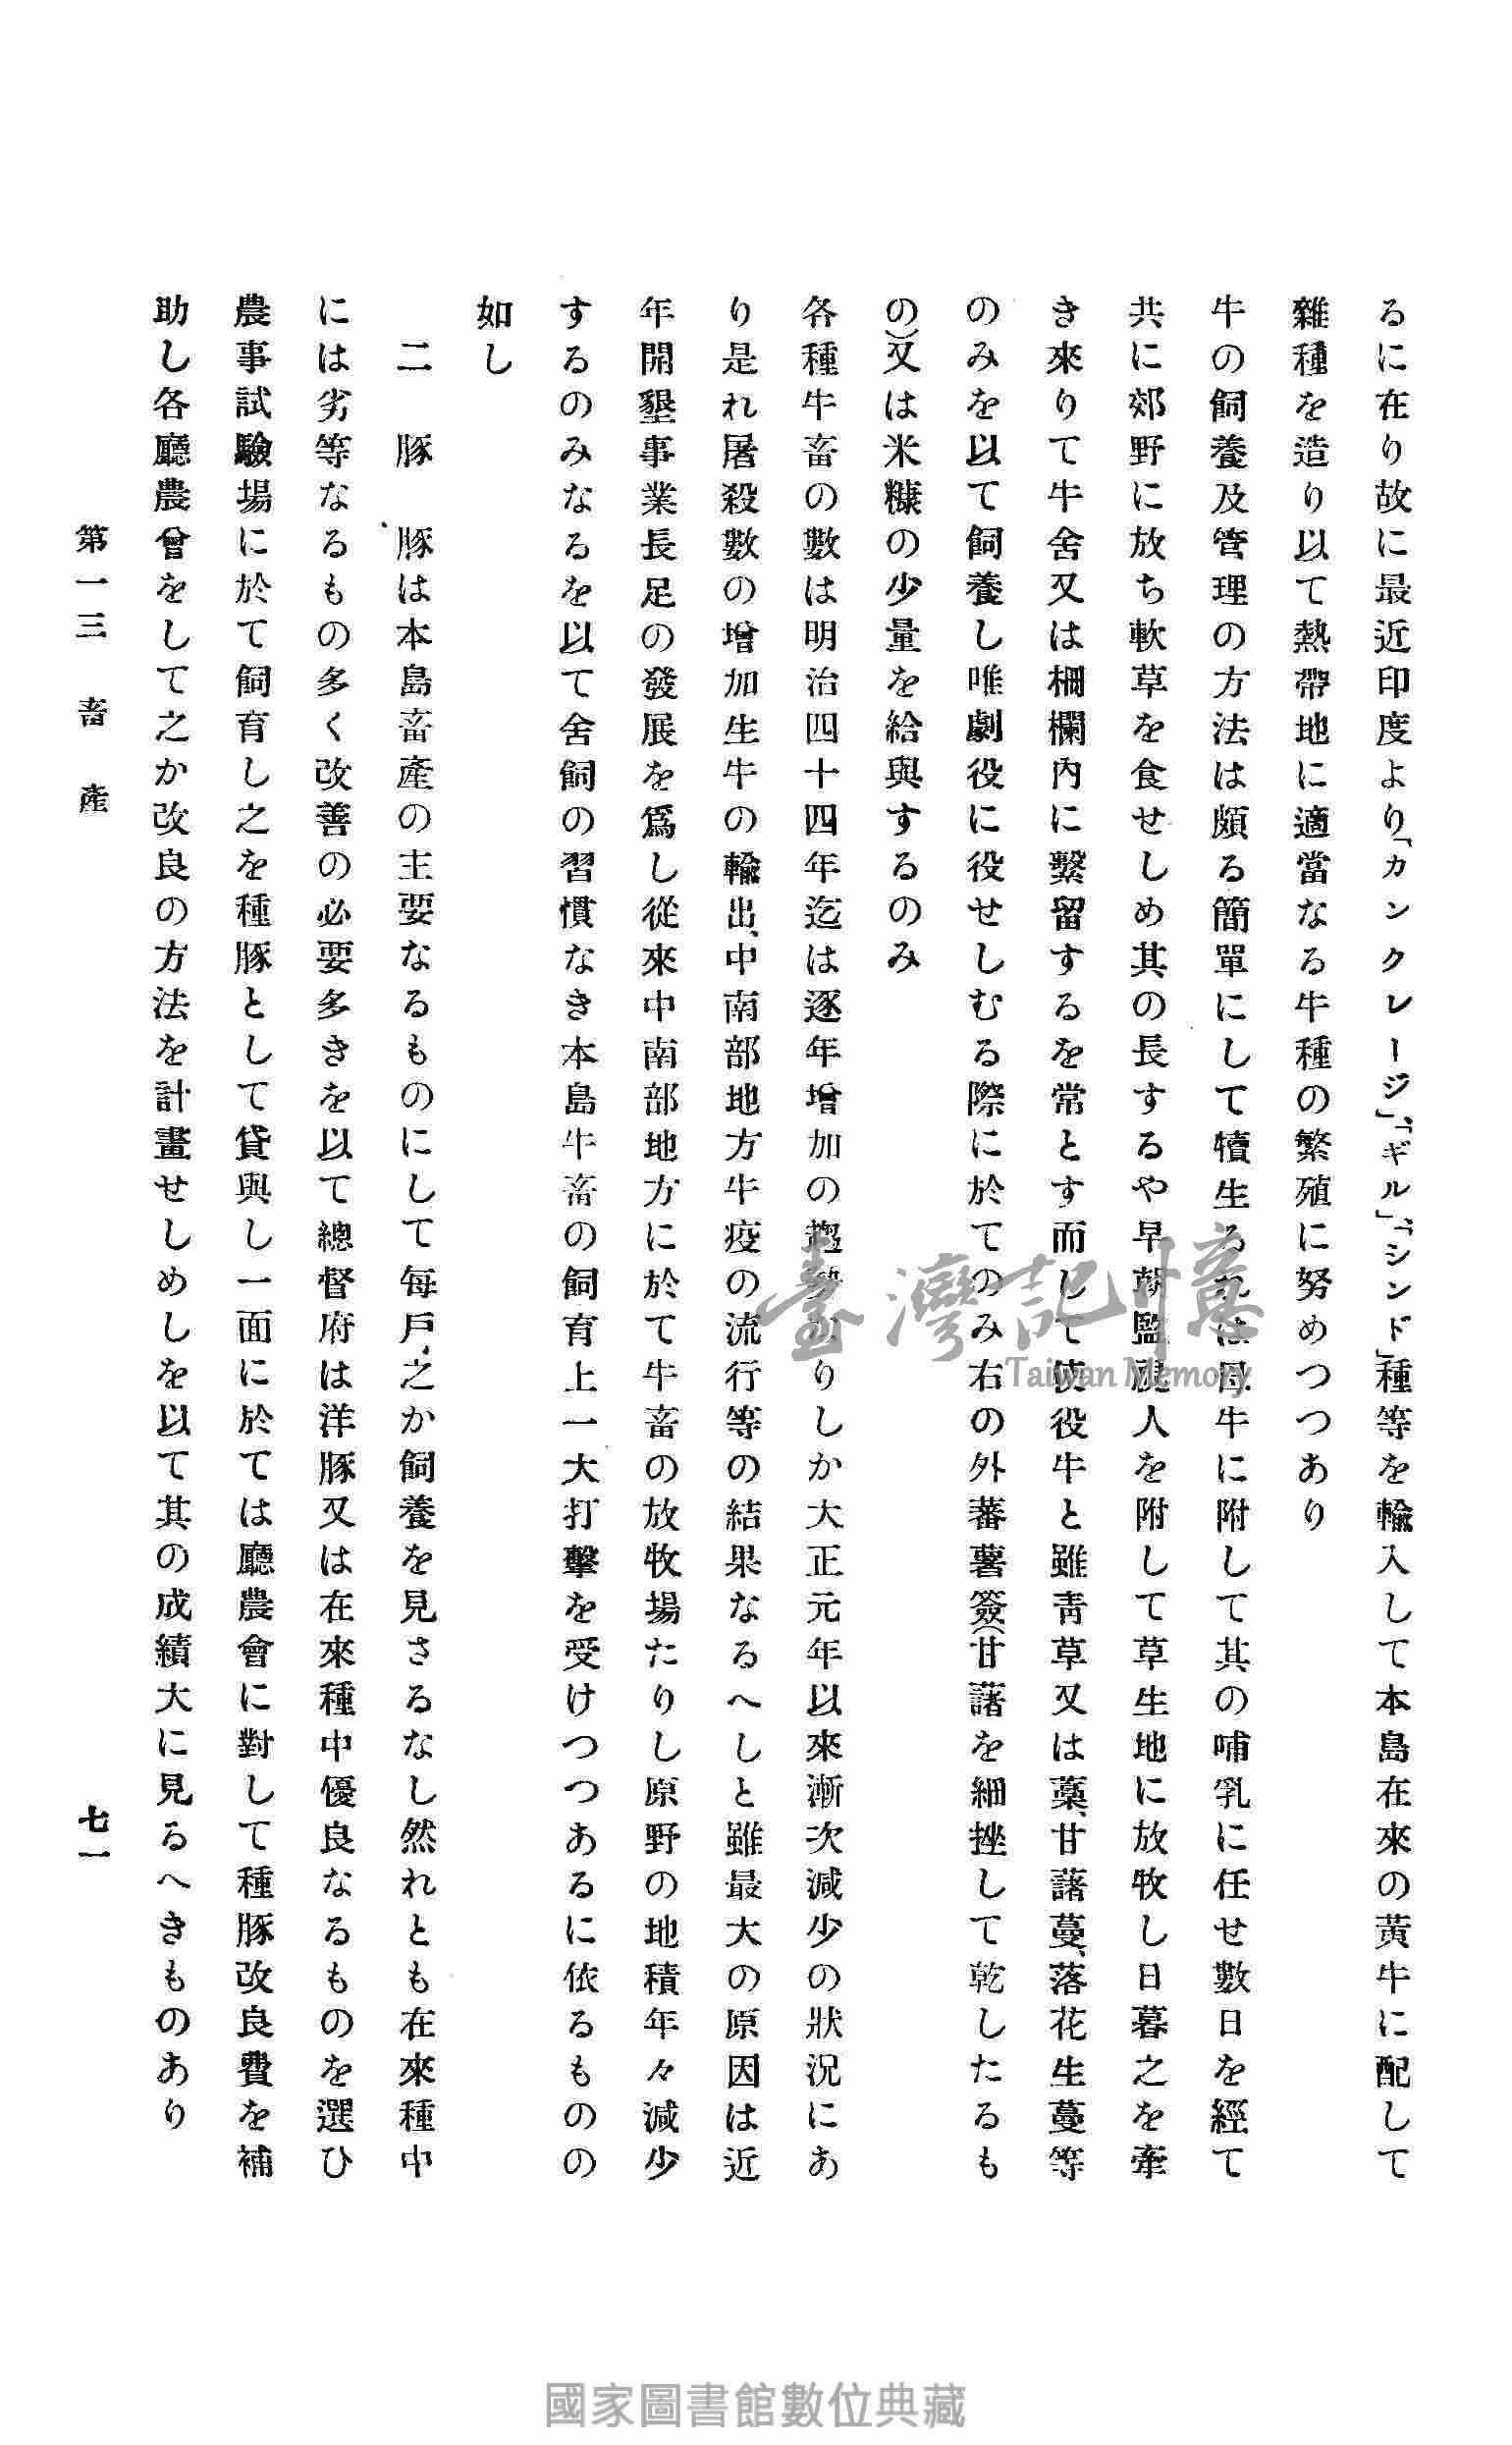 るに在り故に最近印度より「カンクレージ」、「ギル」、「シンド」種等を輸入して本島在來の黃牛に配して
雜種を造り以て熱帶地に適當なる牛種の繁殖に努めつつあり
牛の飼養及管理の方法は頗る簡單にして犢生るれは母牛に附して其の哺乳に任せ數日を經て
共に郊野に放ち軟草を食せしめ其の長するや早朝監視人を附して草生地に放牧し日暮之を牽
き來りて牛舍又は柵欄內に繫留するを常とす而して使役牛と雖靑草又は藁、甘藷蔓、落花生蔓等
のみを以て飼養し唯劇役に役せしむる際に於てのみ右の外蕃薯簽(甘藷を細挫して乾したるも
の)又は米糠の少量を給與するのみ
各種牛畜の數は明治四十四年迄は逐年增加の趨勢なりしか大正元年以來漸次減少の狀況にあ
り是れ屠殺數の增加生牛の輸出、中南部地方牛疫の流行等の結果なるへしと雖最大の原因は近
年開墾事業長足の發展を爲し從來中南部地方に於て牛畜の放牧場たりし原野の地積年々減少
するのみなるを以て舍飼の習慣なき本島牛畜の飼育上一大打擊を受けつつあるに依るものの
如し
二 豚 豚は本島畜產の主要なるものにして每戶、之か飼養を見さるなし然れとも在來種中
には劣等なるもの多く改善の必要多きを以て總督府は洋豚又は在來種中優良なるものを選ひ
農事試驗場に於て飼育し之を種豚として貸與し一面に於ては廳農會に對して種豚改良費を補
助し各廳農會をして之か改良の方法を計畫せしめしを以て其の成績大に見るへきものあり
第一三 畜 產
七一
臺灣記憶
Taiwan Memory
國家圖書館數位典藏